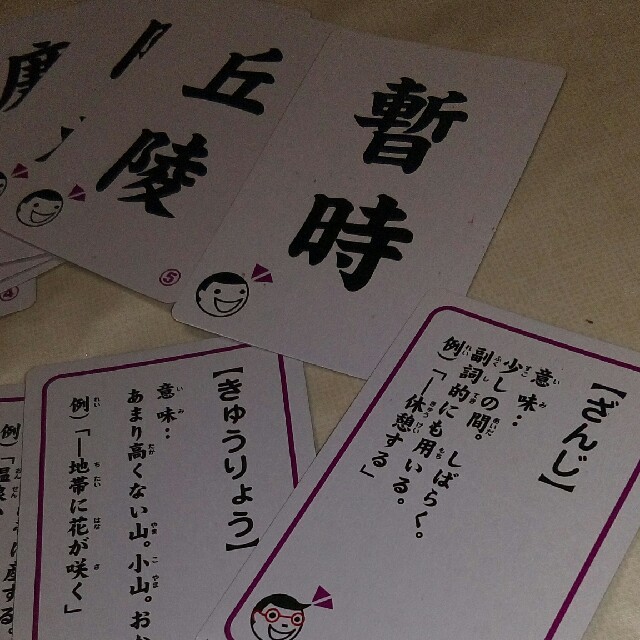 暫時
丘陵
⑤
④
【ざんじ】
意味:
少しの間。しばらく。
副詞的にも用いる。
例)「―休憩する」
【きゅうりょう】
意味:
あまり高くない山。小山。
例)「―地帯に花が咲く」
例)
産する。